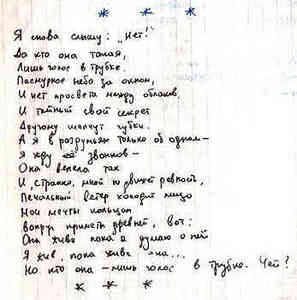 * * *
Я снова слышу: „Нет!"
Да кто она такая,
Лишь голос в трубке.
Пасмурное небо за окном,
И нет просвета между облаков.
И тайный свой секрет
Другому шепчут губки.
А я в раздумьях только об одном –
Я жду её звонков –
Она велела так
И, странно, мной движет ревность,
Печальный ветер холодит лицо
Мои мечты кольцом
вокруг принести древней, вот:
Она жива пока я думаю о ней
Я жив, пока жива она...
Но кто она – лишь голос в трубке. Чей?
* * *